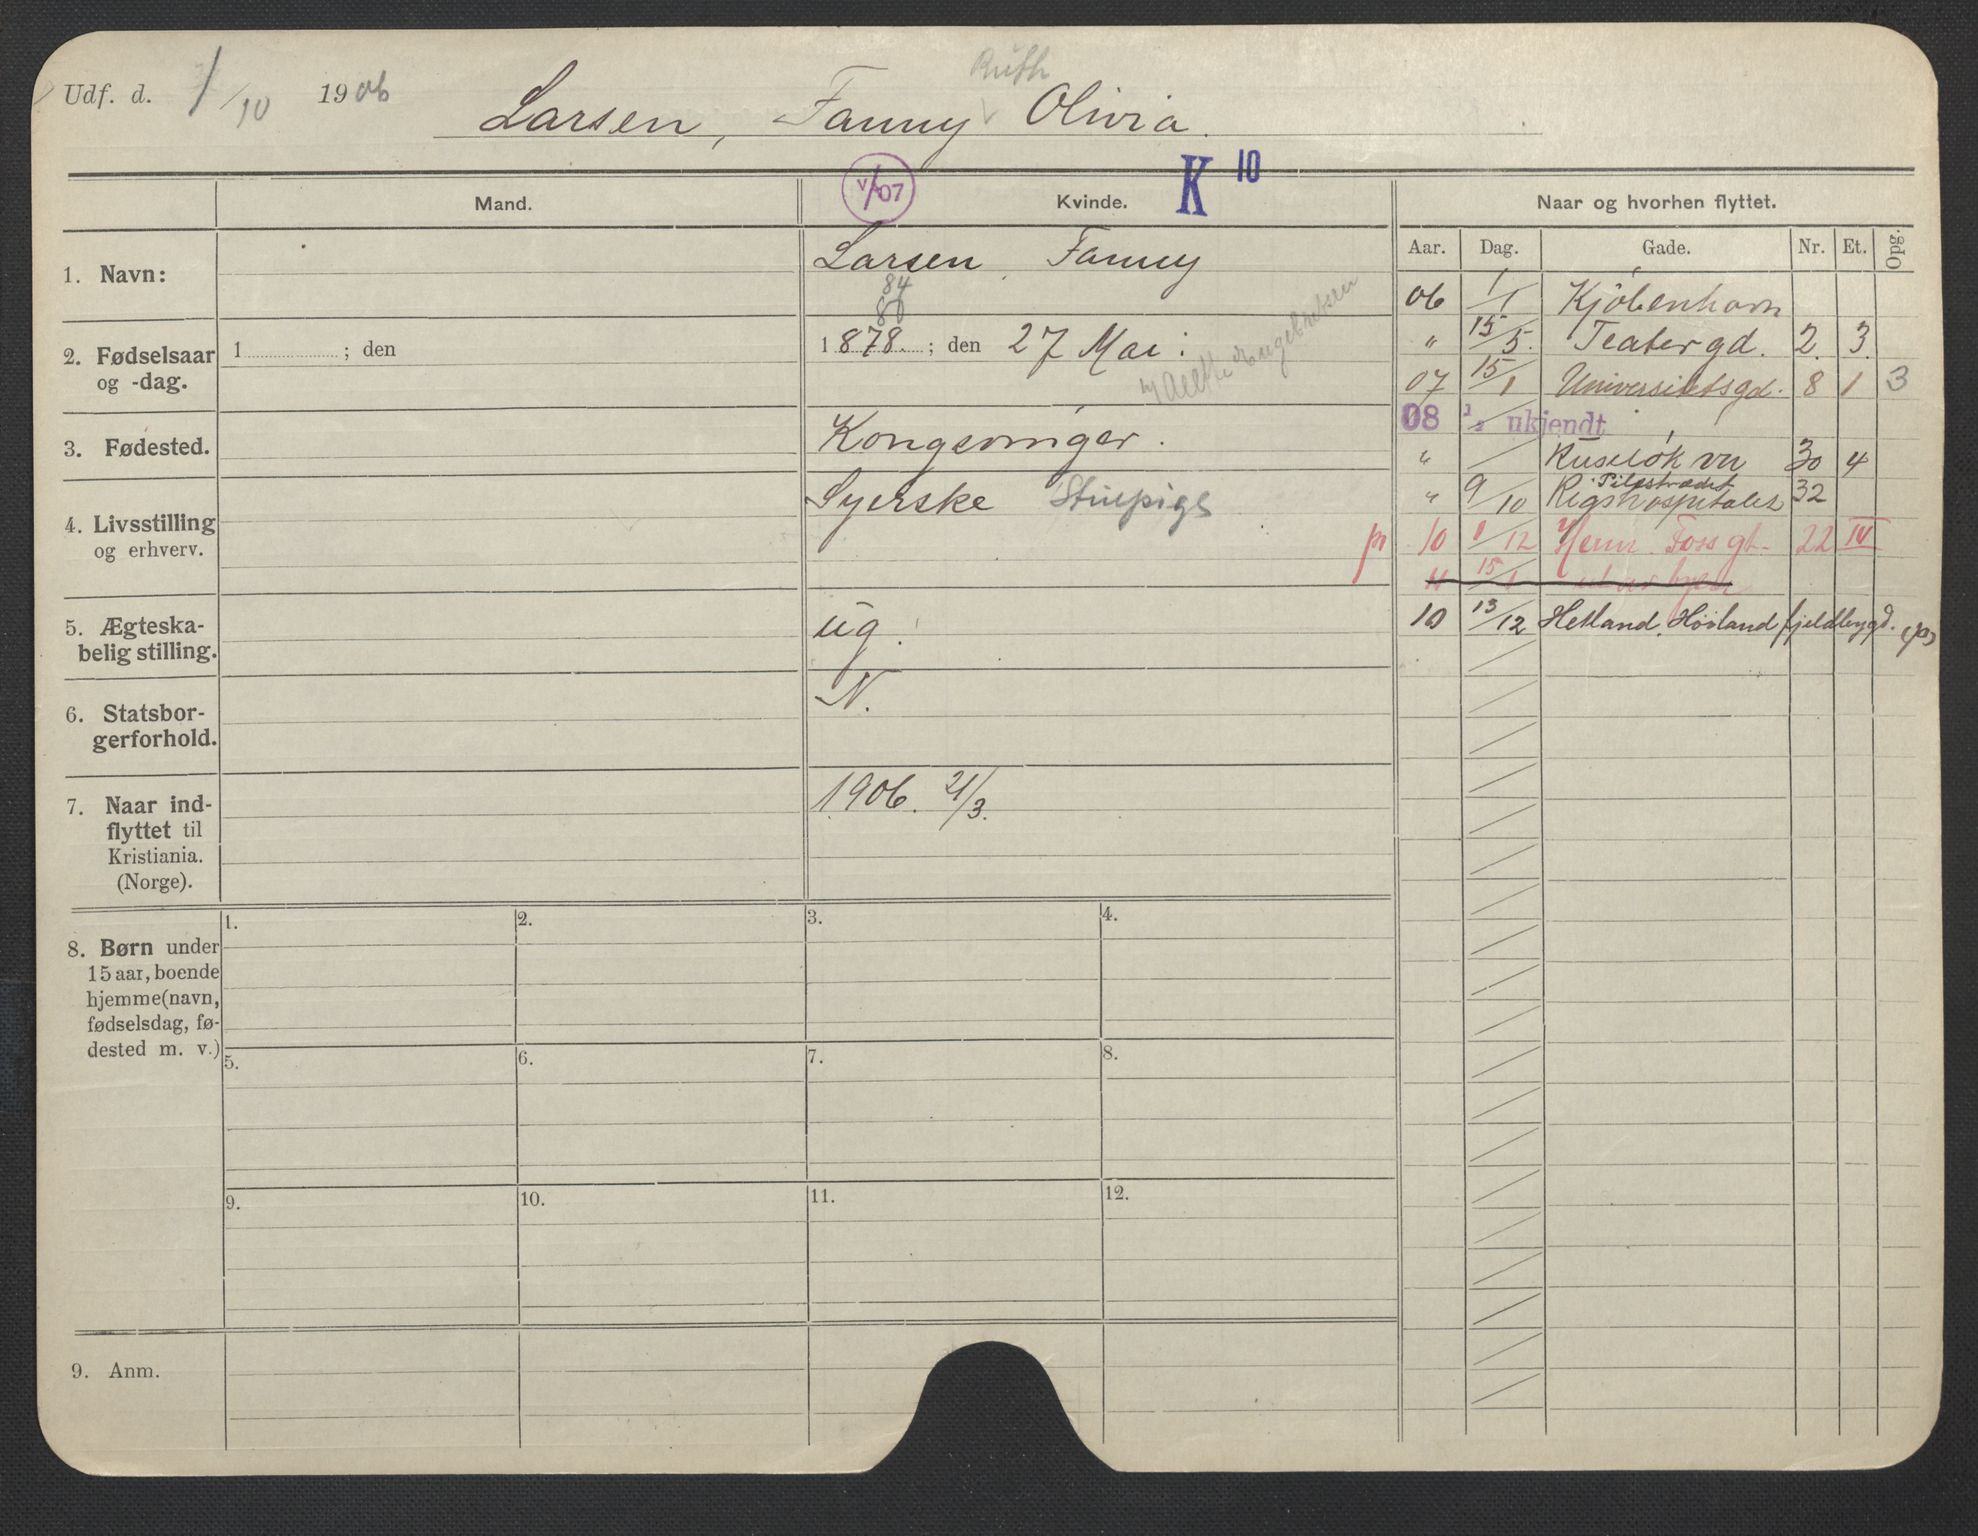 Udf. d. 1/10 1906
Ruth
Larsen, Fanny Olivia.
V/07
K 10
Mand.
Kvinde.
Naar og hvorhen flyttet.
Aar. Dag. Gade. Nr. Et. Opg.
1. Navn:
Larsen, Fanny
84
80
2. Fødselsaar
og -dag.
1 ; den
1878. ; den 27 Mai.
3. Fødested.
Kongsvinger.
4. Livsstilling
og erhverv.
Syerske Stuepige
5. Ægteska-
belig stilling.
ug.
6. Statsbor-
gerforhold.
N.
7. Naar ind-
flyttet til
Kristiania.
(Norge).
1906. 21/3.
06 1/1 Kjöbenhavn
" 15/5. Teatergd. 2. 3.
07 15/1 Universitetsgd. 8 1 3
08 1/ ukjendt
" Ruseløkvn 30 4
Pilestrædet
" 9/10 Rigshospitalet 32
10 1/12 Herm. Foss gt. 22 IV
11 15/1 ut av byen
10 13/12 Hetland, Høiland fjeldbygd.
8. Børn under
15 aar, boende
hjemme (navn,
fødselsdag, fø-
dested m. v.)
1. 2. 3. 4.
5. 6. 7. 8.
9. 10. 11. 12.
9. Anm.